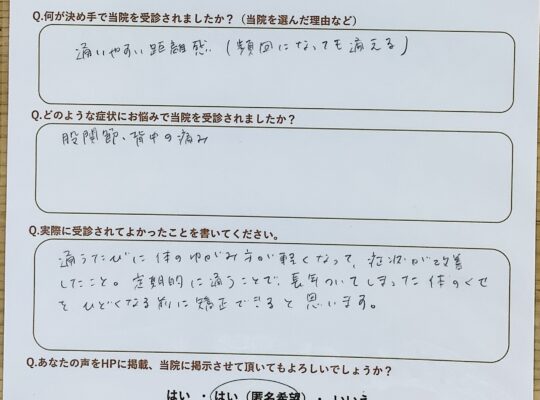 Q.何が決め手で当院を受診されましたか？（当院を選んだ理由など）
通いやすい距離感（頻回になっても通える）
Q.どのような症状にお悩みで当院を受診されましたか？
股関節、背中の痛み
Q.実際に受診されてよかったことを書いてください。
通うたびに体のゆがみ方が軽くなって、症状が改善
したこと。定期的に通うことで、長年ついてしまった体のくせ
をひどくなる前に矯正できると思います。
Q.あなたの声をHPに掲載、当院に掲示させて頂いてもよろしいでしょうか？
はい ・はい（匿名希望）・ いいえ